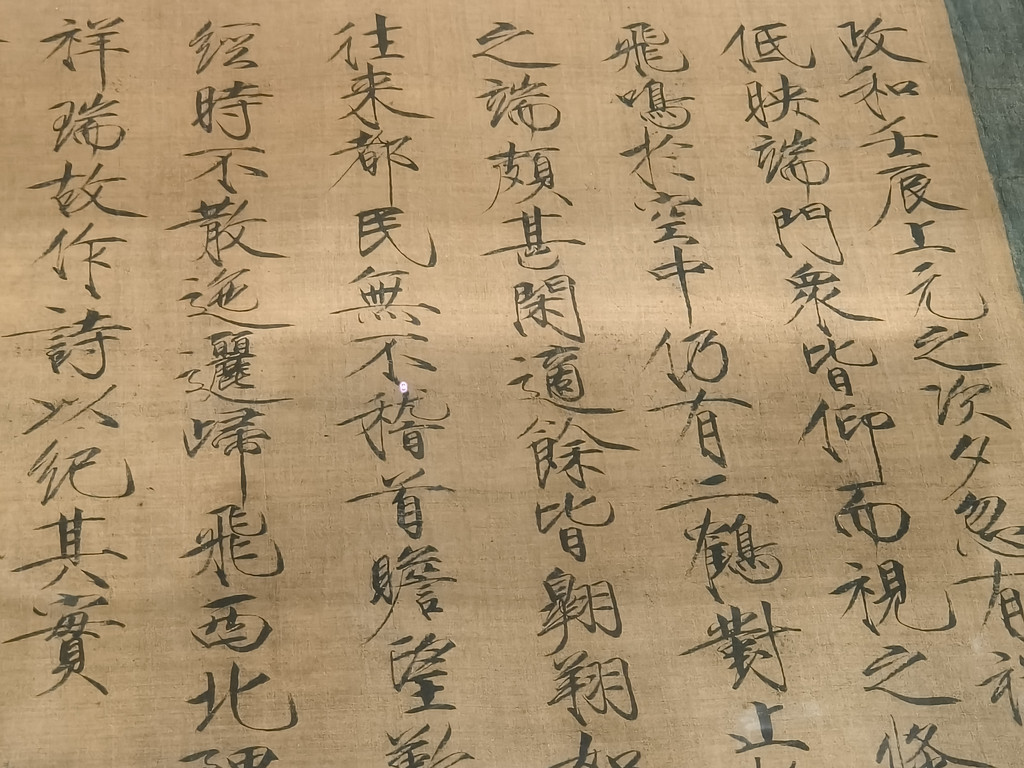 政和壬辰上元之次夕忽有祥
低映端門衆皆仰而視之倐
飛鳴於空中仍有二鶴對止
之端頗甚閑適餘皆翺翔如
往來都民無不稽首瞻望歎
經時不散迤邐歸飛西北隅
祥瑞故作詩以紀其實